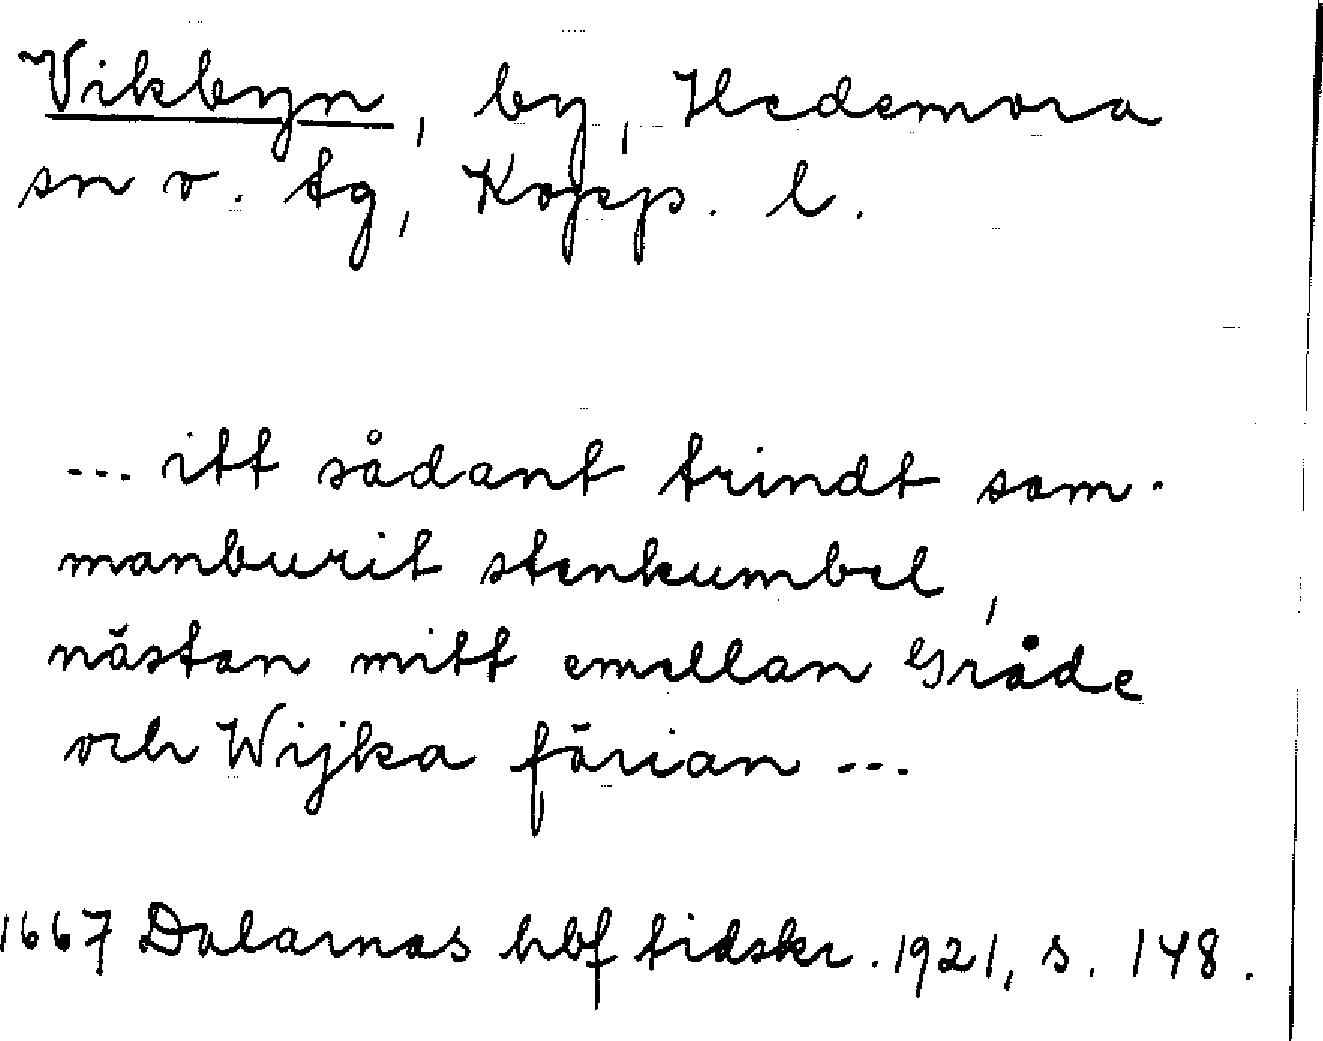 Vikbyn, by, Hedemora
sn o. tg, Kopp. l.
... itt sådant trindt sam-
manburit stenkumbel,
nästan mitt emellan Gråde
och Wijka färian ...
1667 Dalarnas hbf tidskr. 1921, s. 148.